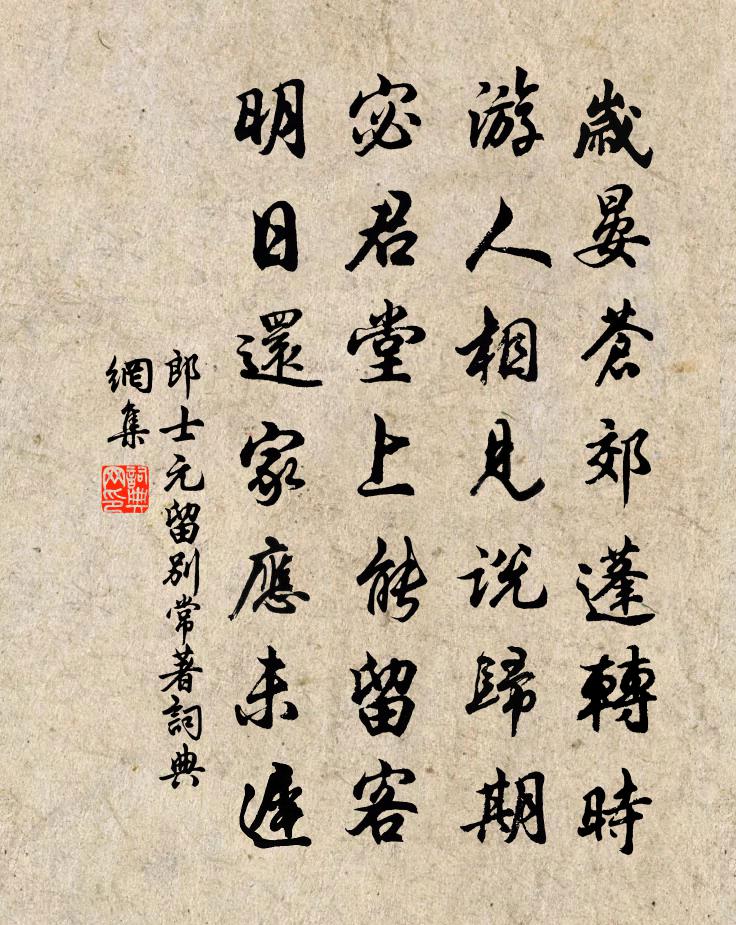 歲晏蒼郊蓬轉時
游人相見説歸期
宓君堂上能留客
明日還家應未遲
郎士元留別常著詞典
網集
詞典
网印